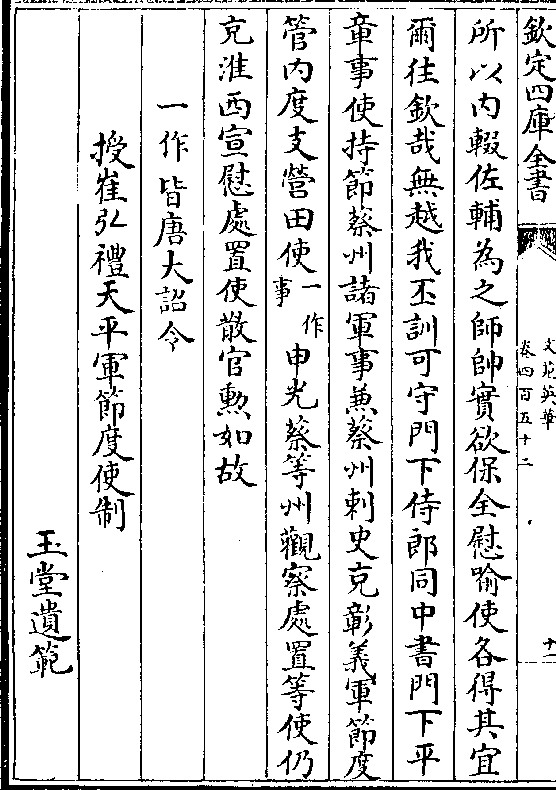 欽定四庫全書
文苑英華
卷四百五十二
十一
所以内輟佐輔為之師帥實欲保全慰喻使各得其宜
爾往欽哉無越我丕訓可守門下侍郎同中書門下平
章事使持節蔡州諸軍事兼蔡州刺史充彰義軍節度
管内度支營田使一作事申光蔡等州觀察處置等使仍
充淮西宣慰處置使散官勲如故
一作皆唐大詔令
授崔弘禮天平軍節度使制
玉堂遺範